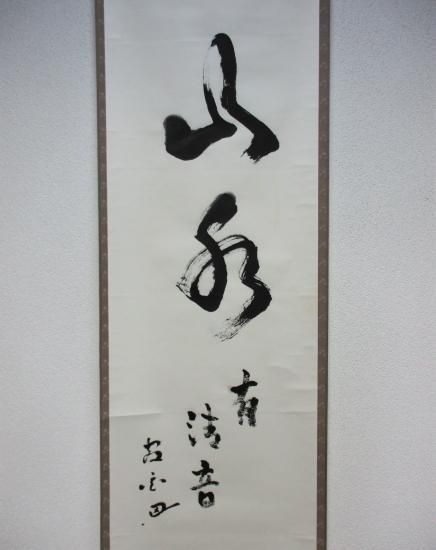 山水
有
清音